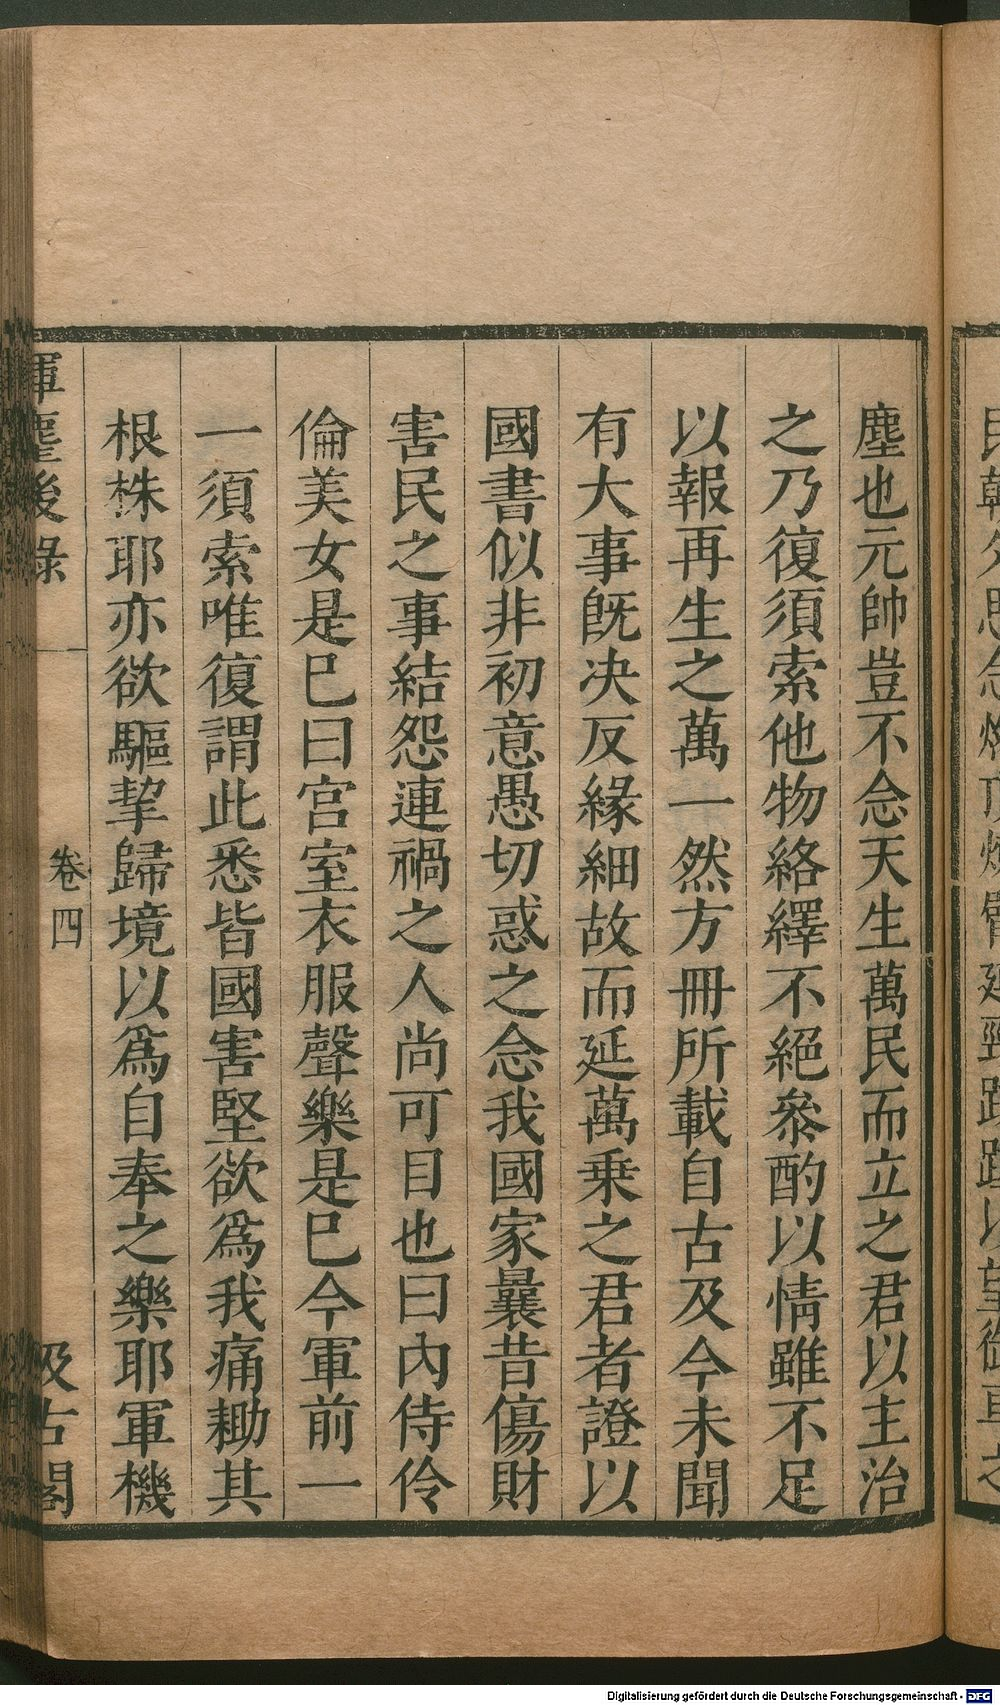 塵也元帥豈不念天生萬民而立之君以主治
之乃復須索他物絡繹不絕叅酌以情雖不足
以報再生之萬一然方冊所載自古及今未聞
有大事旣决反緣細故而延萬乗之君者證以
國書似非初意愚切惑之念我國家曩昔傷財
害民之事結怨連禍之人尚可目也曰內侍伶
倫美女是巳曰宫室衣服聲樂是巳今軍前一
一須索唯復謂此悉皆國害堅欲爲我痛耡其
根株耶亦欲驅挈歸境以爲自奉之樂耶軍機
揮麈後錄
卷四
汲古閣
Digitalisierung gefördert durch die Deutsche Forschungsgemeinschaft - DFG